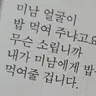 미남 얼굴이
밥 먹여 주냐고요?
무슨 소립니까
내가 미남에게 밥
먹여줄 겁니다.